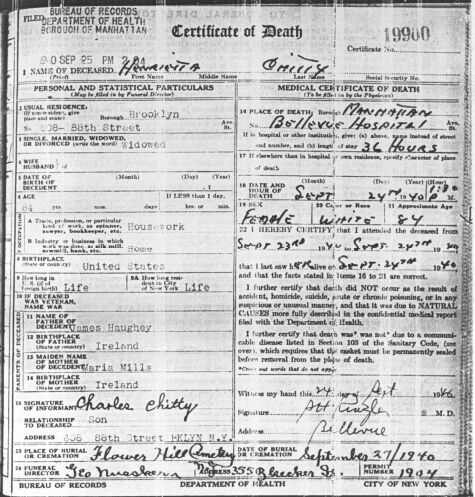 FILED
BUREAU OF RECORDS
DEPARTMENT OF HEALTH
BOROUGH OF MANHATTAN
Certificate of Death
19900
Certificate No.
SEP 25 PM 2
1 NAME OF DECEASED Henrietta Chitty
(Print) First Name Middle Name Last Name Social Security No.
PERSONAL AND STATISTICAL PARTICULARS
(May be filled in by Funeral Director)
2 USUAL RESIDENCE: Brooklyn
(If non-resident, give place and state)
No. 808- 88th Street Ave. St.
3 SINGLE, MARRIED, WIDOWED, OR DIVORCED (write the word) Widowed
4 WIFE HUSBAND of
5 DATE OF BIRTH OF DECEDENT (Month) (Day) (Year)
6 AGE
84 yrs. mos. days
If LESS than 1 day, hrs. or min.
7 OCCUPATION
A Trade, profession, or particular kind of work, as spinner, sawyer, bookkeeper, etc. Housework
B Industry or business in which work was done, as silk mill, sawmill, bank, etc. Home
8 BIRTHPLACE (State or country) United States
9 How long in U. S. (if of foreign birth) Life
9A How long resident in City of New York Life
10 IF DECEASED WAS VETERAN, NAME WAR
PARENTS OF DECEDENT
11 NAME OF FATHER OF DECEDENT James Haughey
12 BIRTHPLACE OF FATHER (State or country) Ireland
13 MAIDEN NAME OF MOTHER OF DECEDENT Maria Mills
14 BIRTHPLACE OF MOTHER (State or country) Ireland
15 SIGNATURE OF INFORMANT Charles Chitty
RELATIONSHIP Son
ADDRESS 808 88th Street BKLYN N.Y.
MEDICAL CERTIFICATE OF DEATH
(To be filled in by the Physician)
16 PLACE OF DEATH: Borough of Manhattan
Bellevue Hospital Ave. St.
If in hospital or other institution, give (a) above, name instead of street and number, and (b) length of stay 36 hours
17 If elsewhere than in hospital or own residence, specify character of place of death
18 DATE AND HOUR OF DEATH (Month) (Day) (Year) (Hour)
Sept 24th 1940
19 SEX 20 Color or Race 21 Approximate Age
Female White 84
22 I HEREBY CERTIFY that I attended the deceased
from Sept 23rd 1940 to Sept 24th 1940
that I last saw her alive on Sept 24th 1940
and that the facts stated in items 16 to 21 are correct.
I further certify that death did NOT occur as the result of accident, homicide, suicide, acute or chronic poisoning, or in any suspicious or unusual manner, and that it was due to NATURAL CAUSES more fully described in the confidential medical report filed with the Department of Health.
I further certify that death was* was not* due to a communicable disease listed in Section 103 of the Sanitary Code, (see over), which requires that the casket must be permanently sealed before removal from the place of death.
(*Cross out words that do not apply.
Witness my hand this 24 day of Sept 1940
Signature M. D.
Address Bellevue
23 PLACE OF BURIAL OR CREMATION Flower Hill Cemetery
DATE OF BURIAL OR CREMATION September 27/1940
24 FUNERAL DIRECTOR Geo ADDRESS 355 Bleecker St.
PERMIT NUMBER 1904
BUREAU OF RECORDS DEPARTMENT OF HEALTH CITY OF NEW YORK